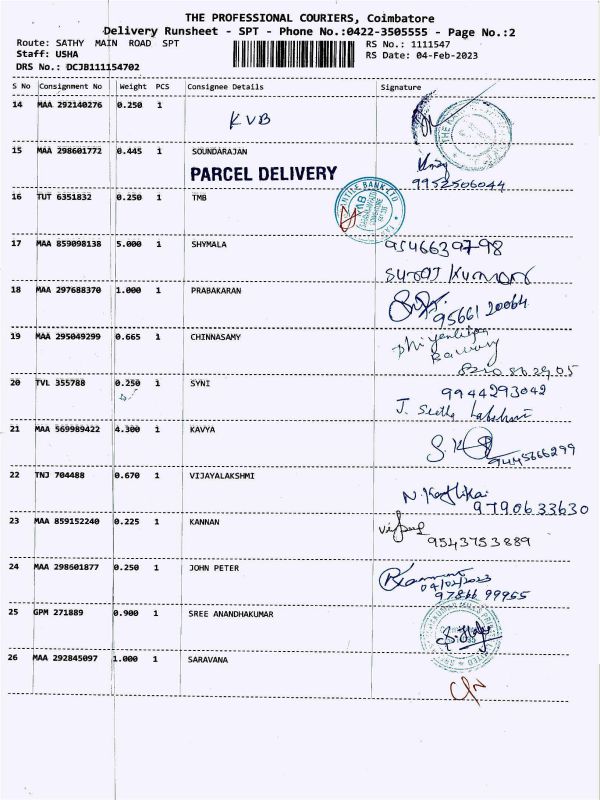 THE PROFESSIONAL COURIERS, Coimbatore
Delivery Runsheet - SPT - Phone No.:0422-3505555 - Page No.:2
Route: SATHY MAIN ROAD SPT
RS No.: 1111547
Staff: USHA
RS Date: 04-Feb-2023
DRS No.: DCJB111154702
S No Consignment No Weight PCS Consignee Details Signature
14 MAA 292140276 0.250 1
KVB
15 MAA 298601772 0.445 1 SOUNDARAJAN
PARCEL DELIVERY
9952506044
16 TUT 6351832 0.250 1 TMB
17 MAA 859098138 5.000 1 SHYMALA
9546639798
Suraj Kumar
18 MAA 297688370 1.000 1 PRABAKARAN
95661 20064
19 MAA 295049299 0.665 1 CHINNASAMY
20 TVL 355788 0.250 1 SYNI
9944293042
J. Seetha Lakshmi
21 MAA 569989422 4.300 1 KAVYA
9445666299
22 TNJ 704488 0.670 1 VIJAYALAKSHMI
N. Karthikai
9790633630
23 MAA 859152240 0.225 1 KANNAN
9543753889
24 MAA 298601877 0.250 1 JOHN PETER
04/02/2023
97866 99955
25 GPM 271889 0.900 1 SREE ANANDHAKUMAR
26 MAA 292845097 1.000 1 SARAVANA